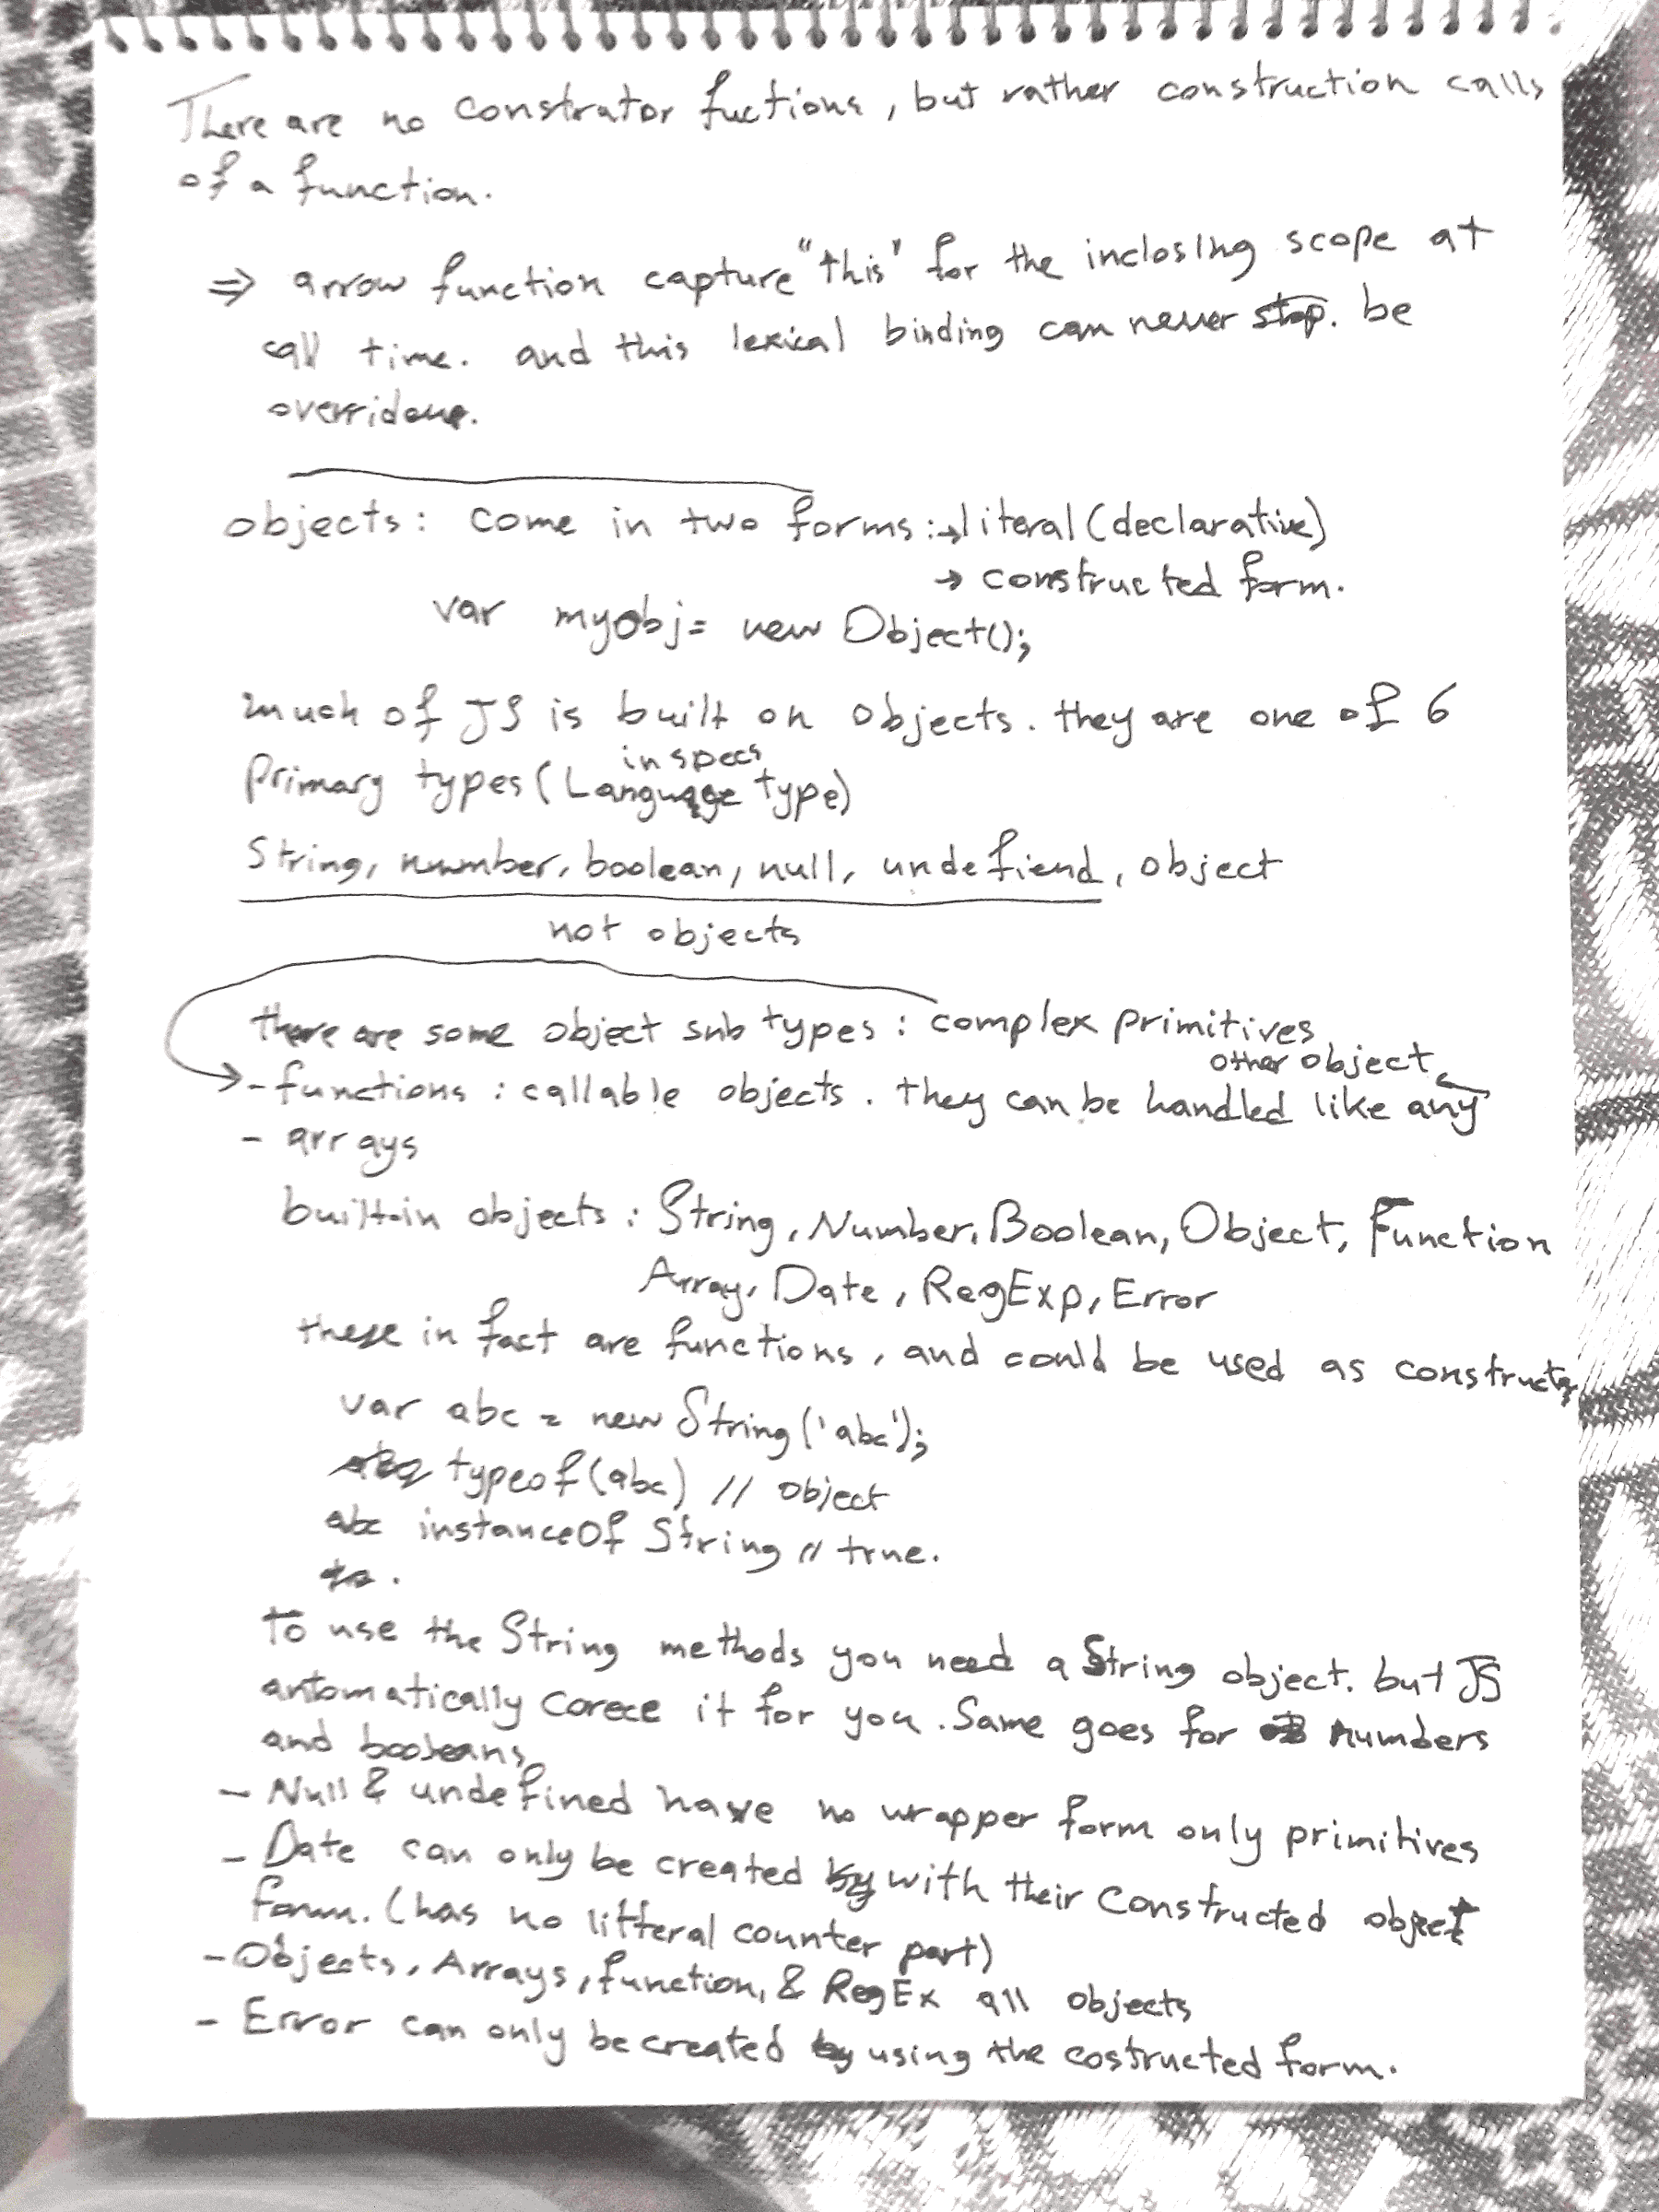 There are no constrator fuctions, but rather construction calls
of a function.
⇒ arrow function capture "this" for the inclosing scope at
call time. and this lexical binding can never stop. be
overridoue.
objects: come in two forms: → literal (declarative)
→ constructed form.
var myobj = new Object();
much of JS is built on objects. they are one of 6
in specs
primary types (Language type)
String, number, boolean, null, undefiend, object
not objects
there are some object sub types: complex primitives
other object
- functions: callable objects. they can be handled like any
- arrays
built-in objects: String, Number, Boolean, Object, Function
Array, Date, RegExp, Error
these in fact are functions, and could be used as constructor
var abc = new String('abc');
typeof(abc) // object
abc instanceOf String // true.
To use the String methods you need a String object. but JS
automatically corece it for you. Same goes for numbers
and booleans
- Null & undefined have no wrapper form only primitives
- Date can only be created by with their constructed object
form. (has no litteral counter part)
- Objects, Arrays, function, & RegEx all objects
- Error can only be created by using the costructed form.